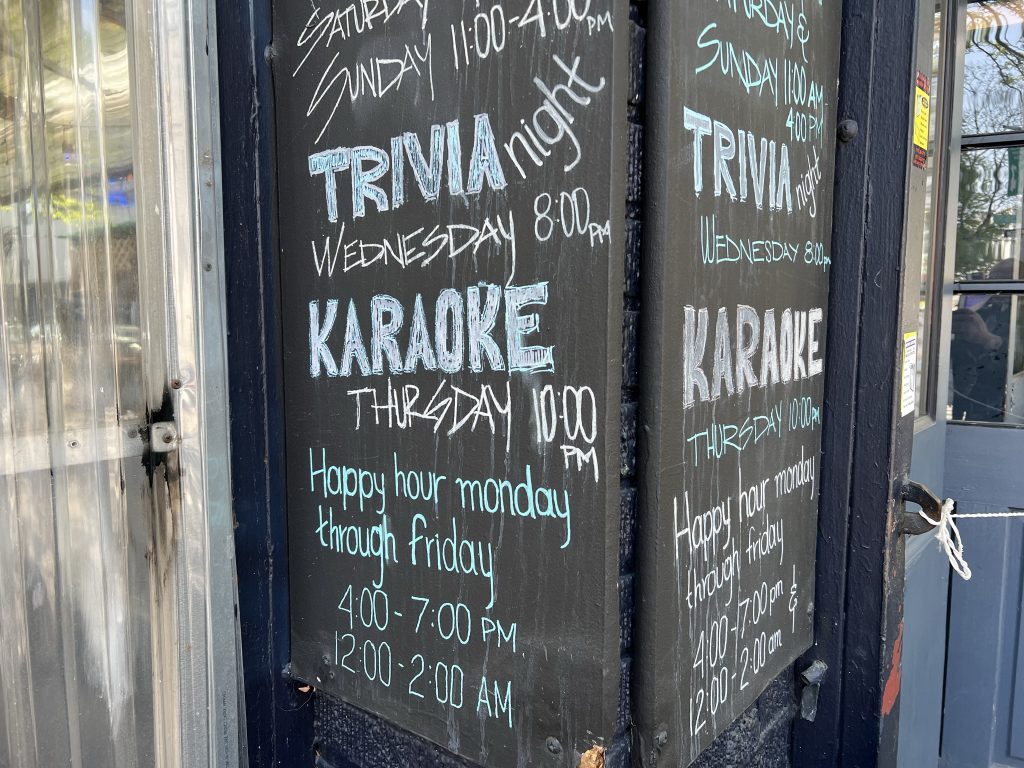 SATURDAY
SUNDAY 11:00-4:00PM
TRIVIA night
WEDNESDAY 8:00PM
KARAOKE
THURSDAY 10:00
PM
Happy hour monday
through friday
4:00-7:00 PM
12:00-2:00 AM
SATURDAY &
SUNDAY 11:00 AM
4:00 PM
TRIVIA night
WEDNESDAY 8:00pm
KARAOKE
THURSDAY 10:00PM
Happy hour monday
through friday
4:00-7:00 pm &
12:00-2:00 am